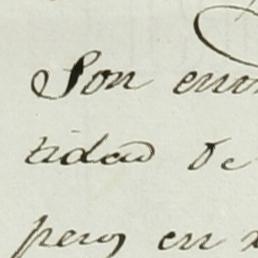 Son
tidad de
pero en